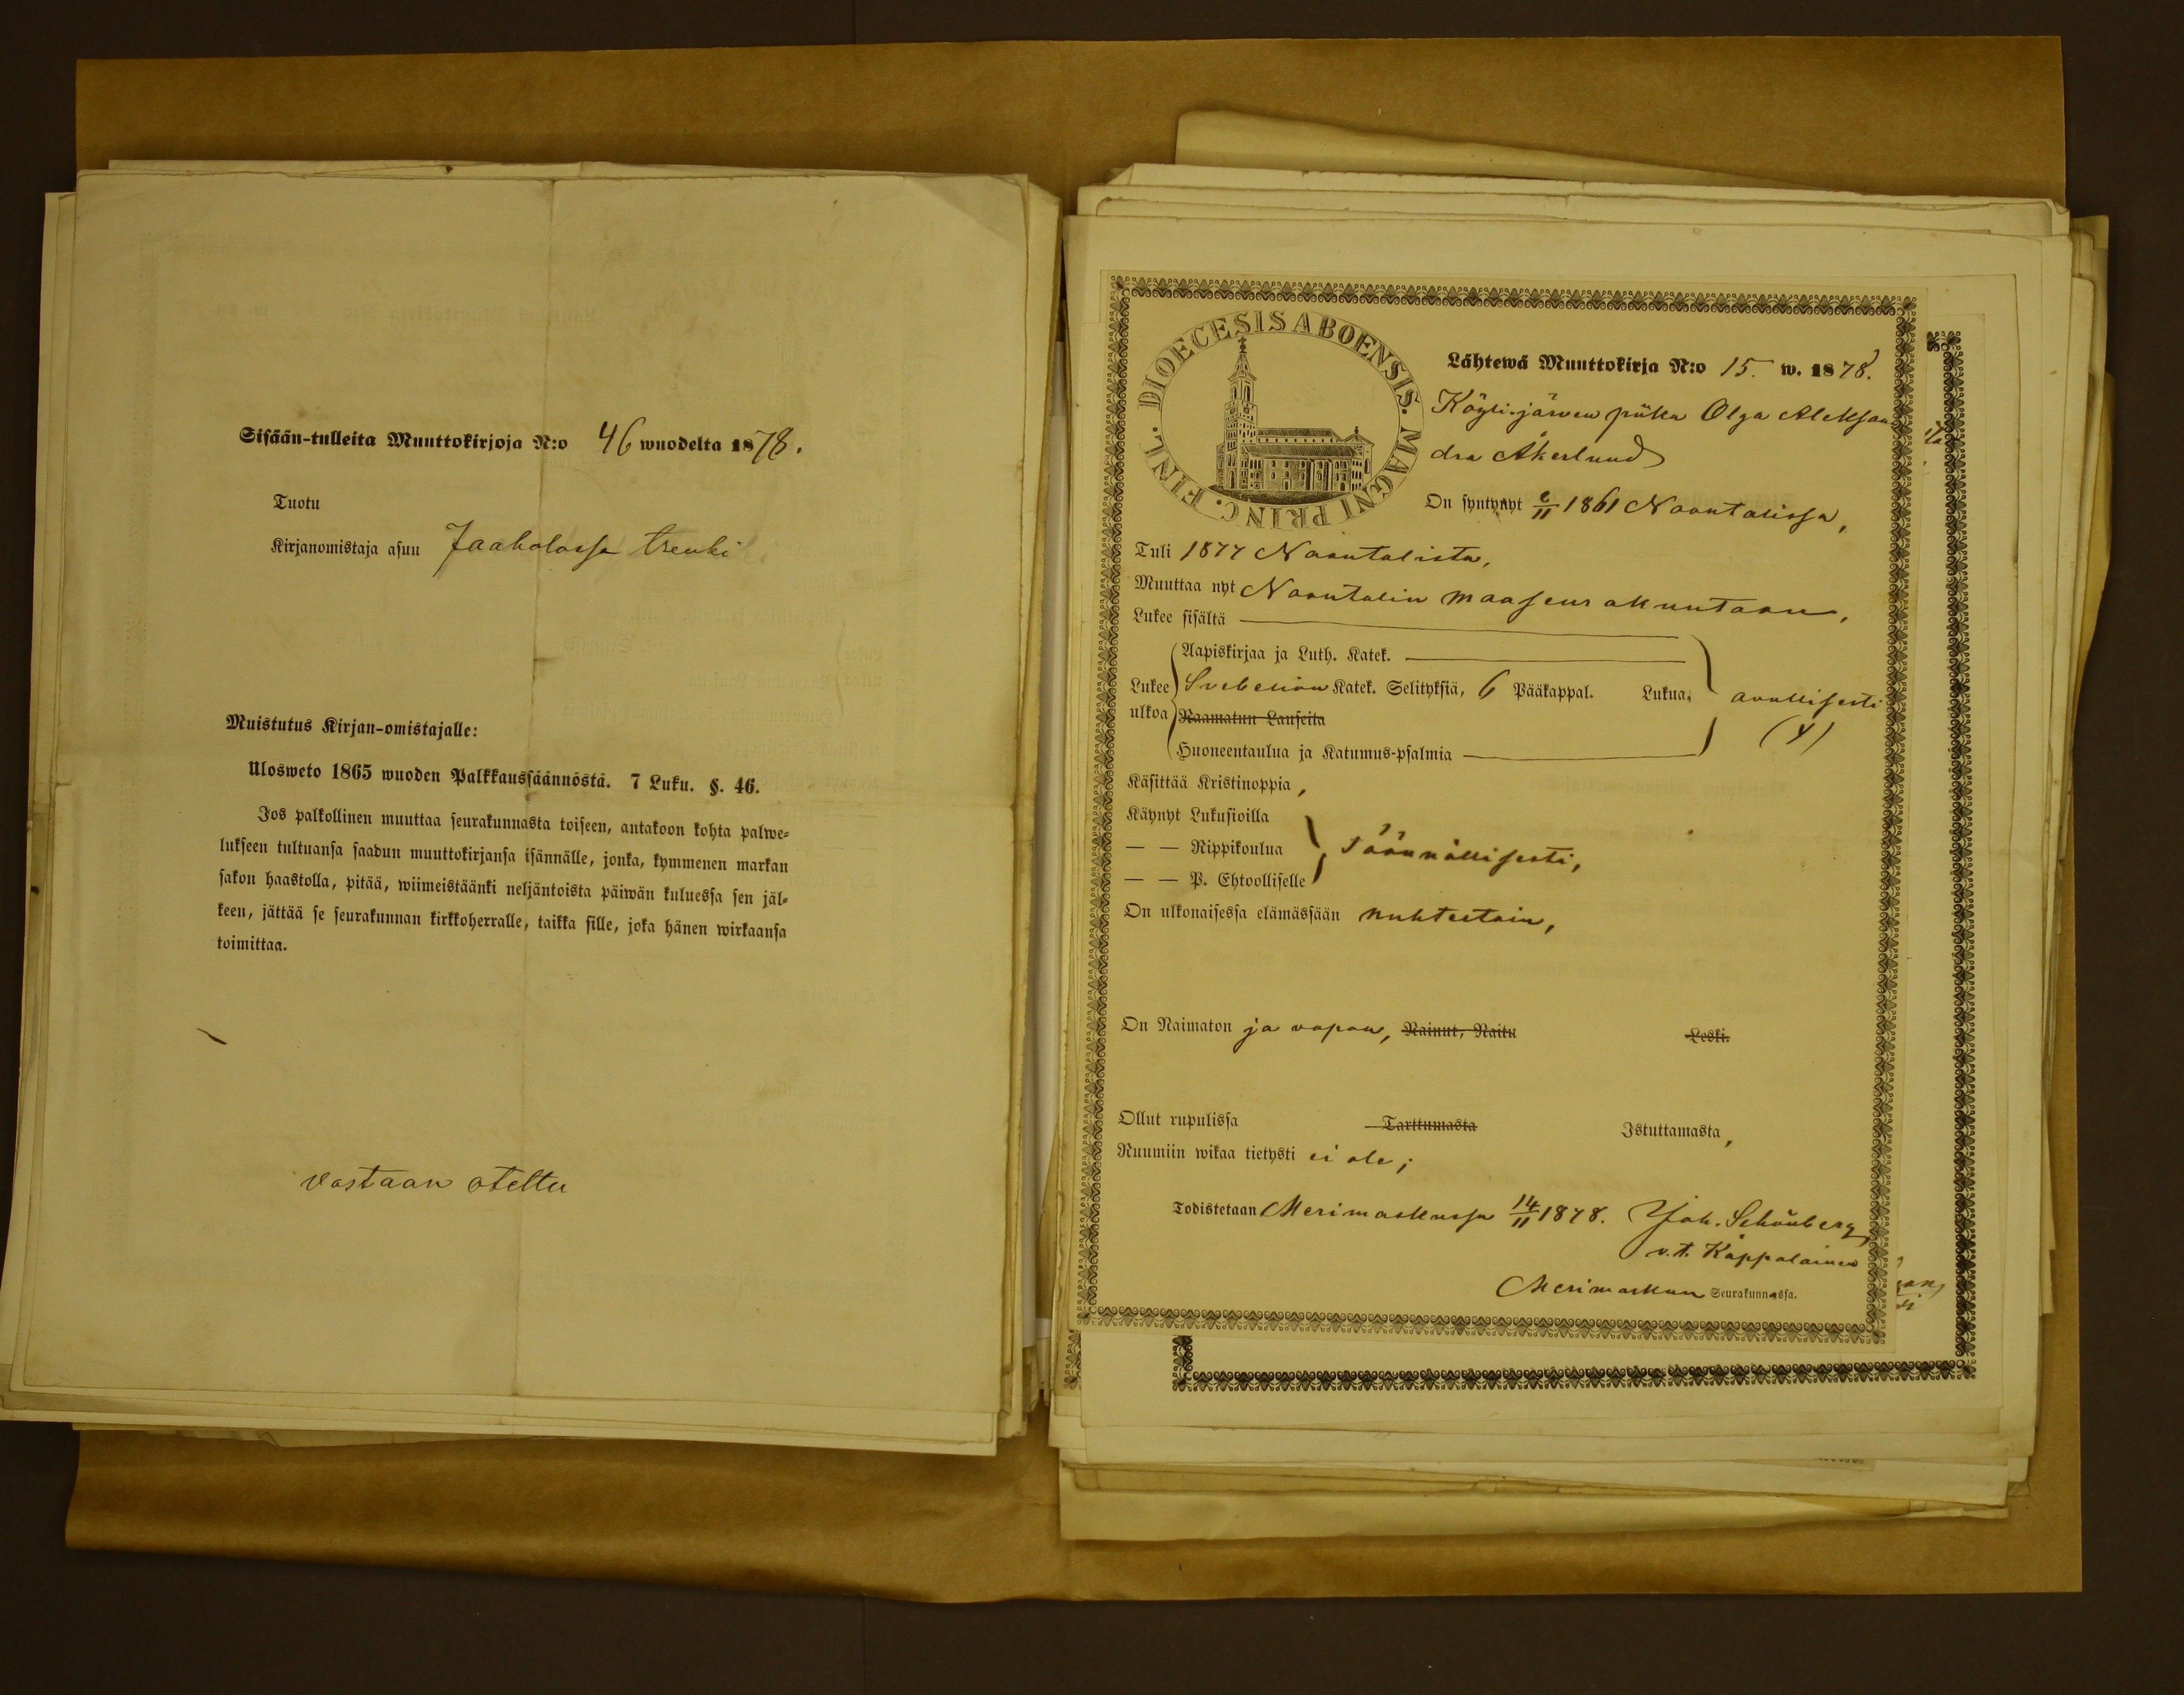 Sisään-tulleita Muuttokirjoja N:o 46 wuodelta 1878.
Tuotu
Kirjanomistaja asuu Jaakolassa trenki
Muistutus Kirjan-omistajalle:
Ulosweto 1865 wuoden Palkkaussäännöstä. 7 Luku. §. 46.
Jos palkollinen muuttaa seurakunnasta toiseen, antakoon kohta palwe-
lukseen tultuansa saadun muuttokirjansa isännälle, jonka, kymmenen markan
sakon haastolla, pitää, wiimeistäänki neljäntoista päiwän kuluessa sen jäl-
keen, jättää se seurakunnan kirkkoherralle, taikka sille, joka hänen wirkaansa
toimittaa.
vastaan otettu
DIOECESIS ABOENSIS. MAGNI PRINC. FINL.
Lähtewä Muuttokirja N:o 15. w. 1878.
Köyli-järven piika Olga Aleksan
dra Åkerlund
On syntynyt /11 1861 Naantalissa,
Tuli 1877 Naantalista,
Muuttaa nyt Naantalin maaseurakuntaan,
Lukee sisältä
Aapiskirjaa ja Luth. Katek.
Lukee ulkoa Svebeliön Katek. Selityksiä, 6 Pääkappal. Lukua. auttisesti
Raamatun Lauseita (4)
Huoneentaulua ja Katumus-psalmia
Käsittää Kristinoppia,
Käynyt Lukusioilla
— — Rippikoulua säännöllisesti,
— — P. Ehtoolliselle
On ulkonaisessa elämässään nuhteetoin,
On Naimaton ja vapaa, Nainut, Naitu Leski.
Ollut rupulissa Tarttumasta Istuttamasta,
Ruumiin wikaa tietysti ei ole;
Todistetaan Merimaskussa 14/11 1878. Joh. Schönberg
v.t. Kappalainen
Merimaskun Seurakunnassa.